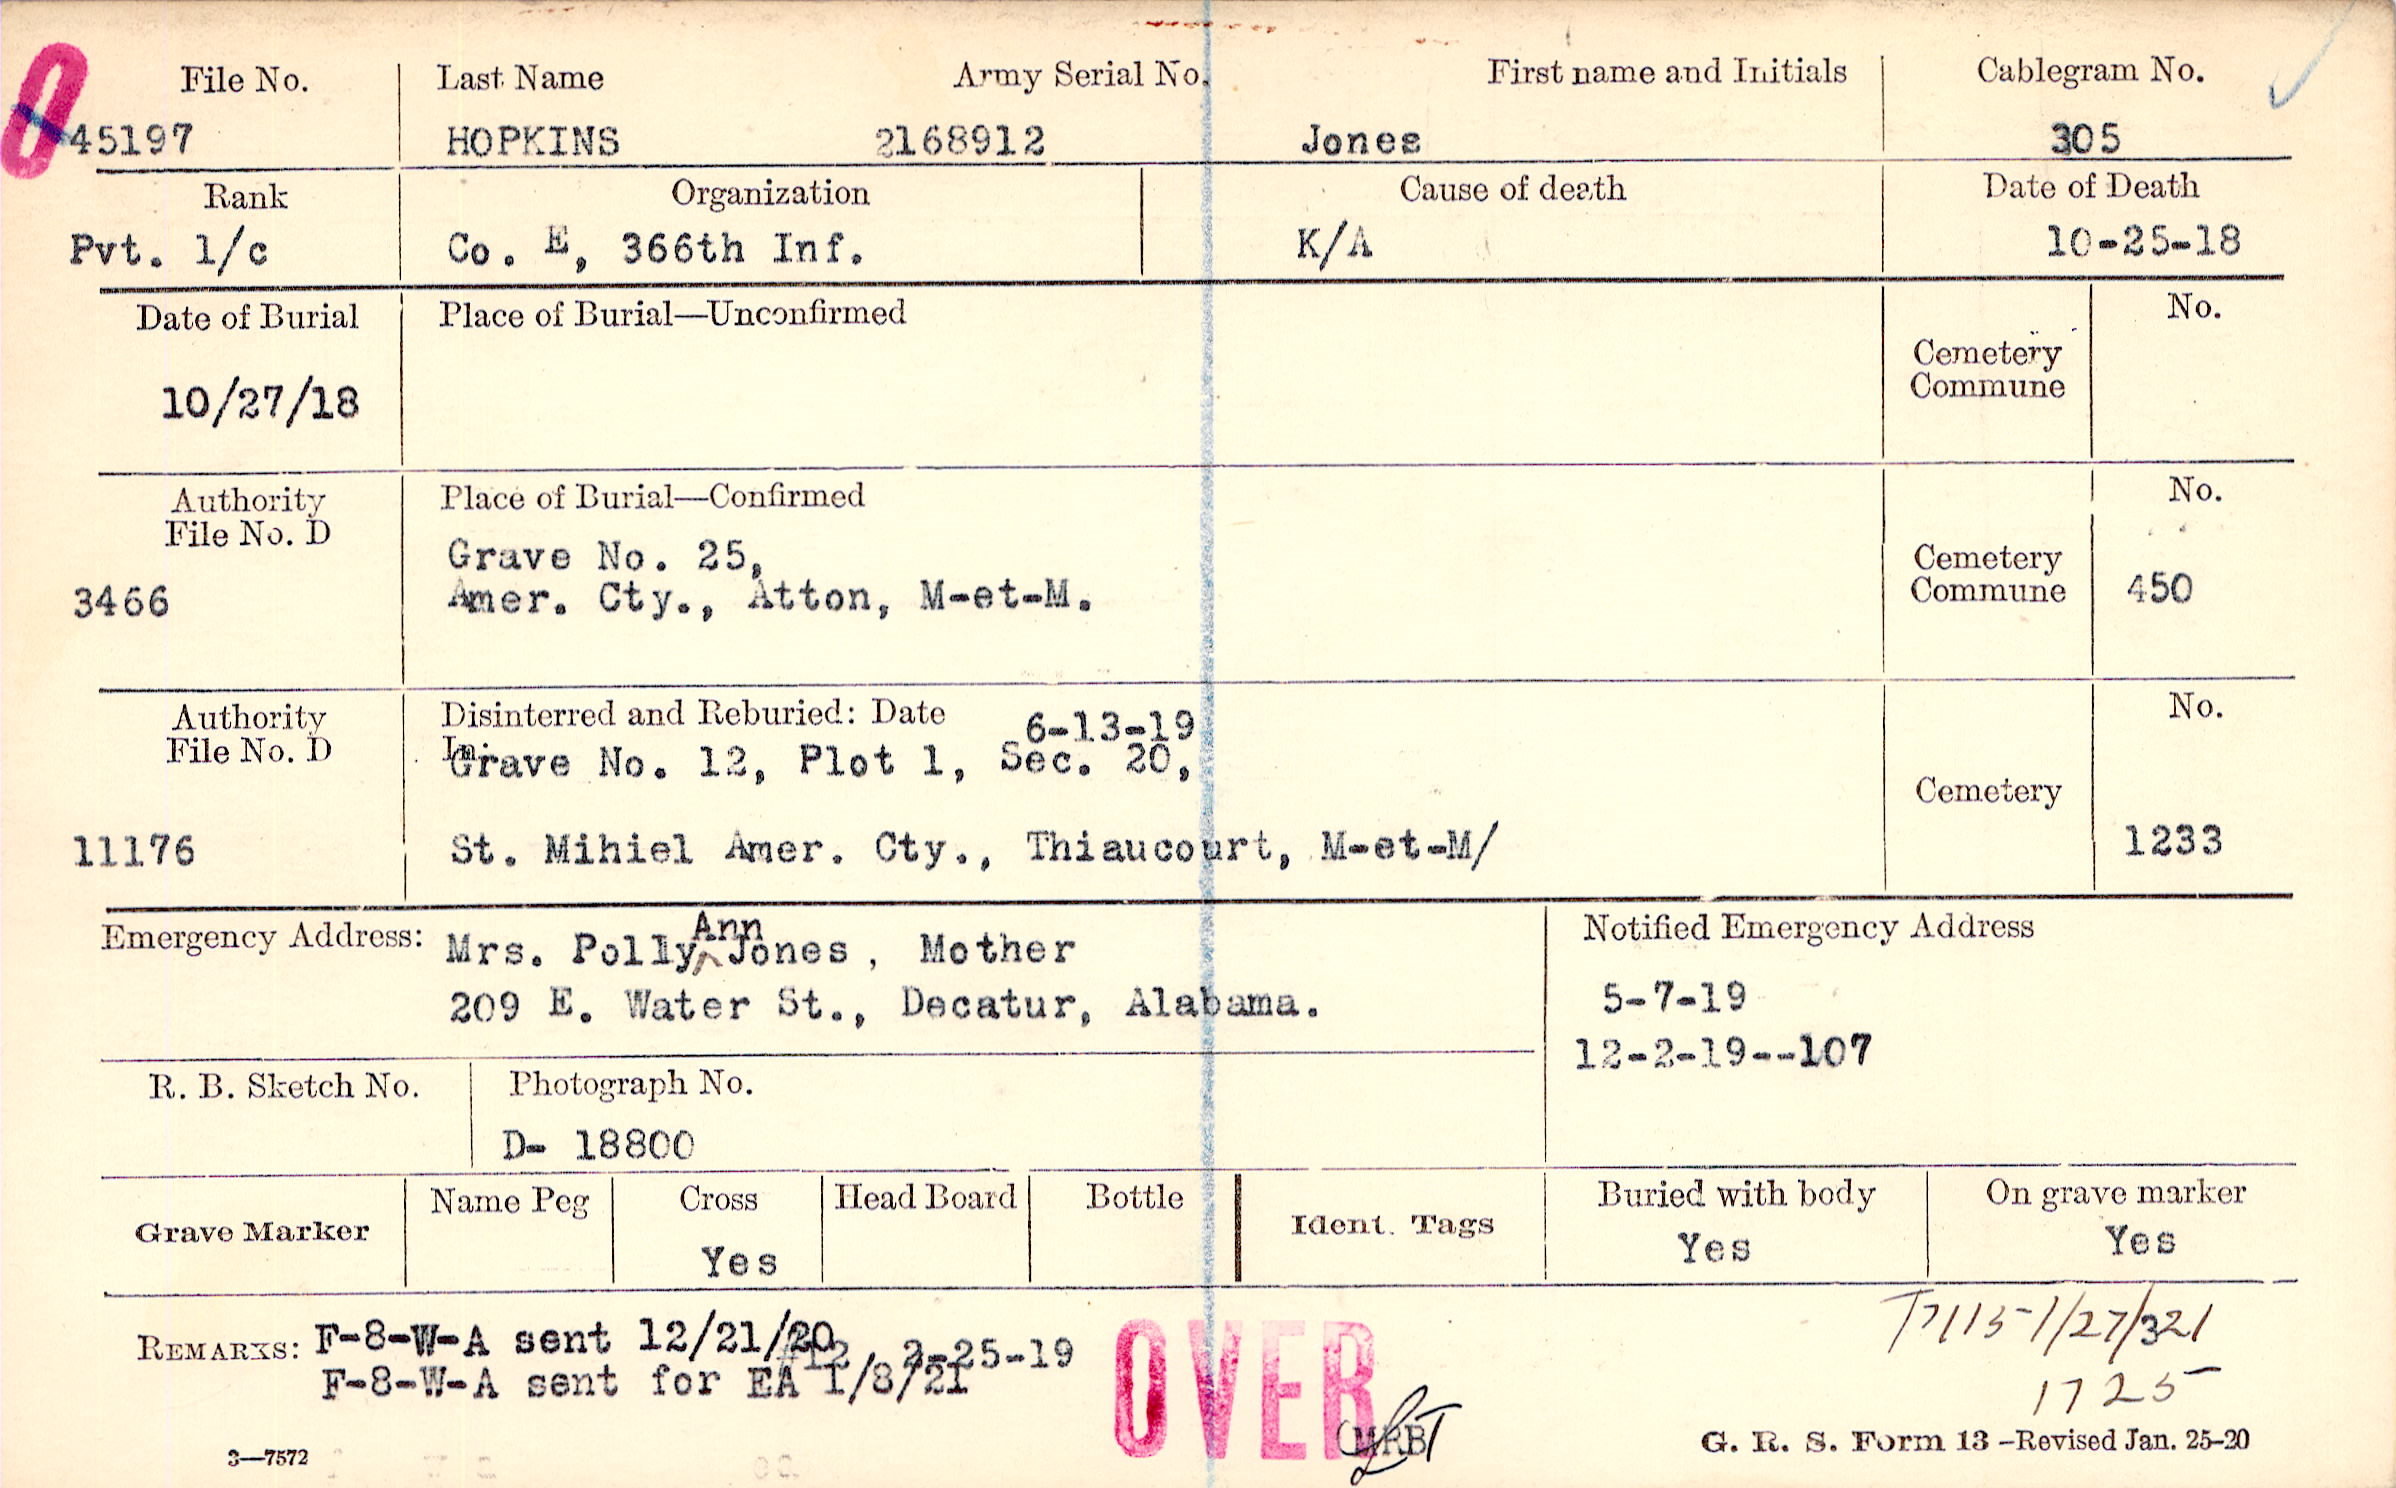 O
File No. Last Name Army Serial No. First name and Initials Cablegram No.
45197 HOPKINS 2168912 Jones 305
Rank Organization Cause of death Date of Death
Pvt. 1/c Co. E, 366th Inf. K/A 10-25-18
Date of Burial Place of Burial—Unconfirmed No.
Cemetery
Commune
10/27/18
Authority Place of Burial—Confirmed No.
File No. D
Grave No. 25, Cemetery
3466 Amer. Cty., Atton, M-et-M. Commune 450
Authority Disinterred and Reburied: Date 6-13-19 No.
File No. D In:
Grave No. 12, Plot 1, Sec. 20,
Cemetery
11176 St. Mihiel Amer. Cty., Thiaucourt, M-et-M/ 1233
Emergency Address: Mrs. Polly Ann Jones, Mother Notified Emergency Address
209 E. Water St., Decatur, Alabama. 5-7-19
12-2-19--107
R. B. Sketch No. Photograph No.
D- 18800
Grave Marker Name Peg Cross Head Board Bottle Ident. Tags Buried with body On grave marker
Yes Yes Yes
REMARKS: F-8-W-A sent 12/21/20
#12 2-25-19
F-8-W-A sent for EA 1/8/21
OVER
MRB
1725
3—7572 G. R. S. Form 13 –Revised Jan. 25–20